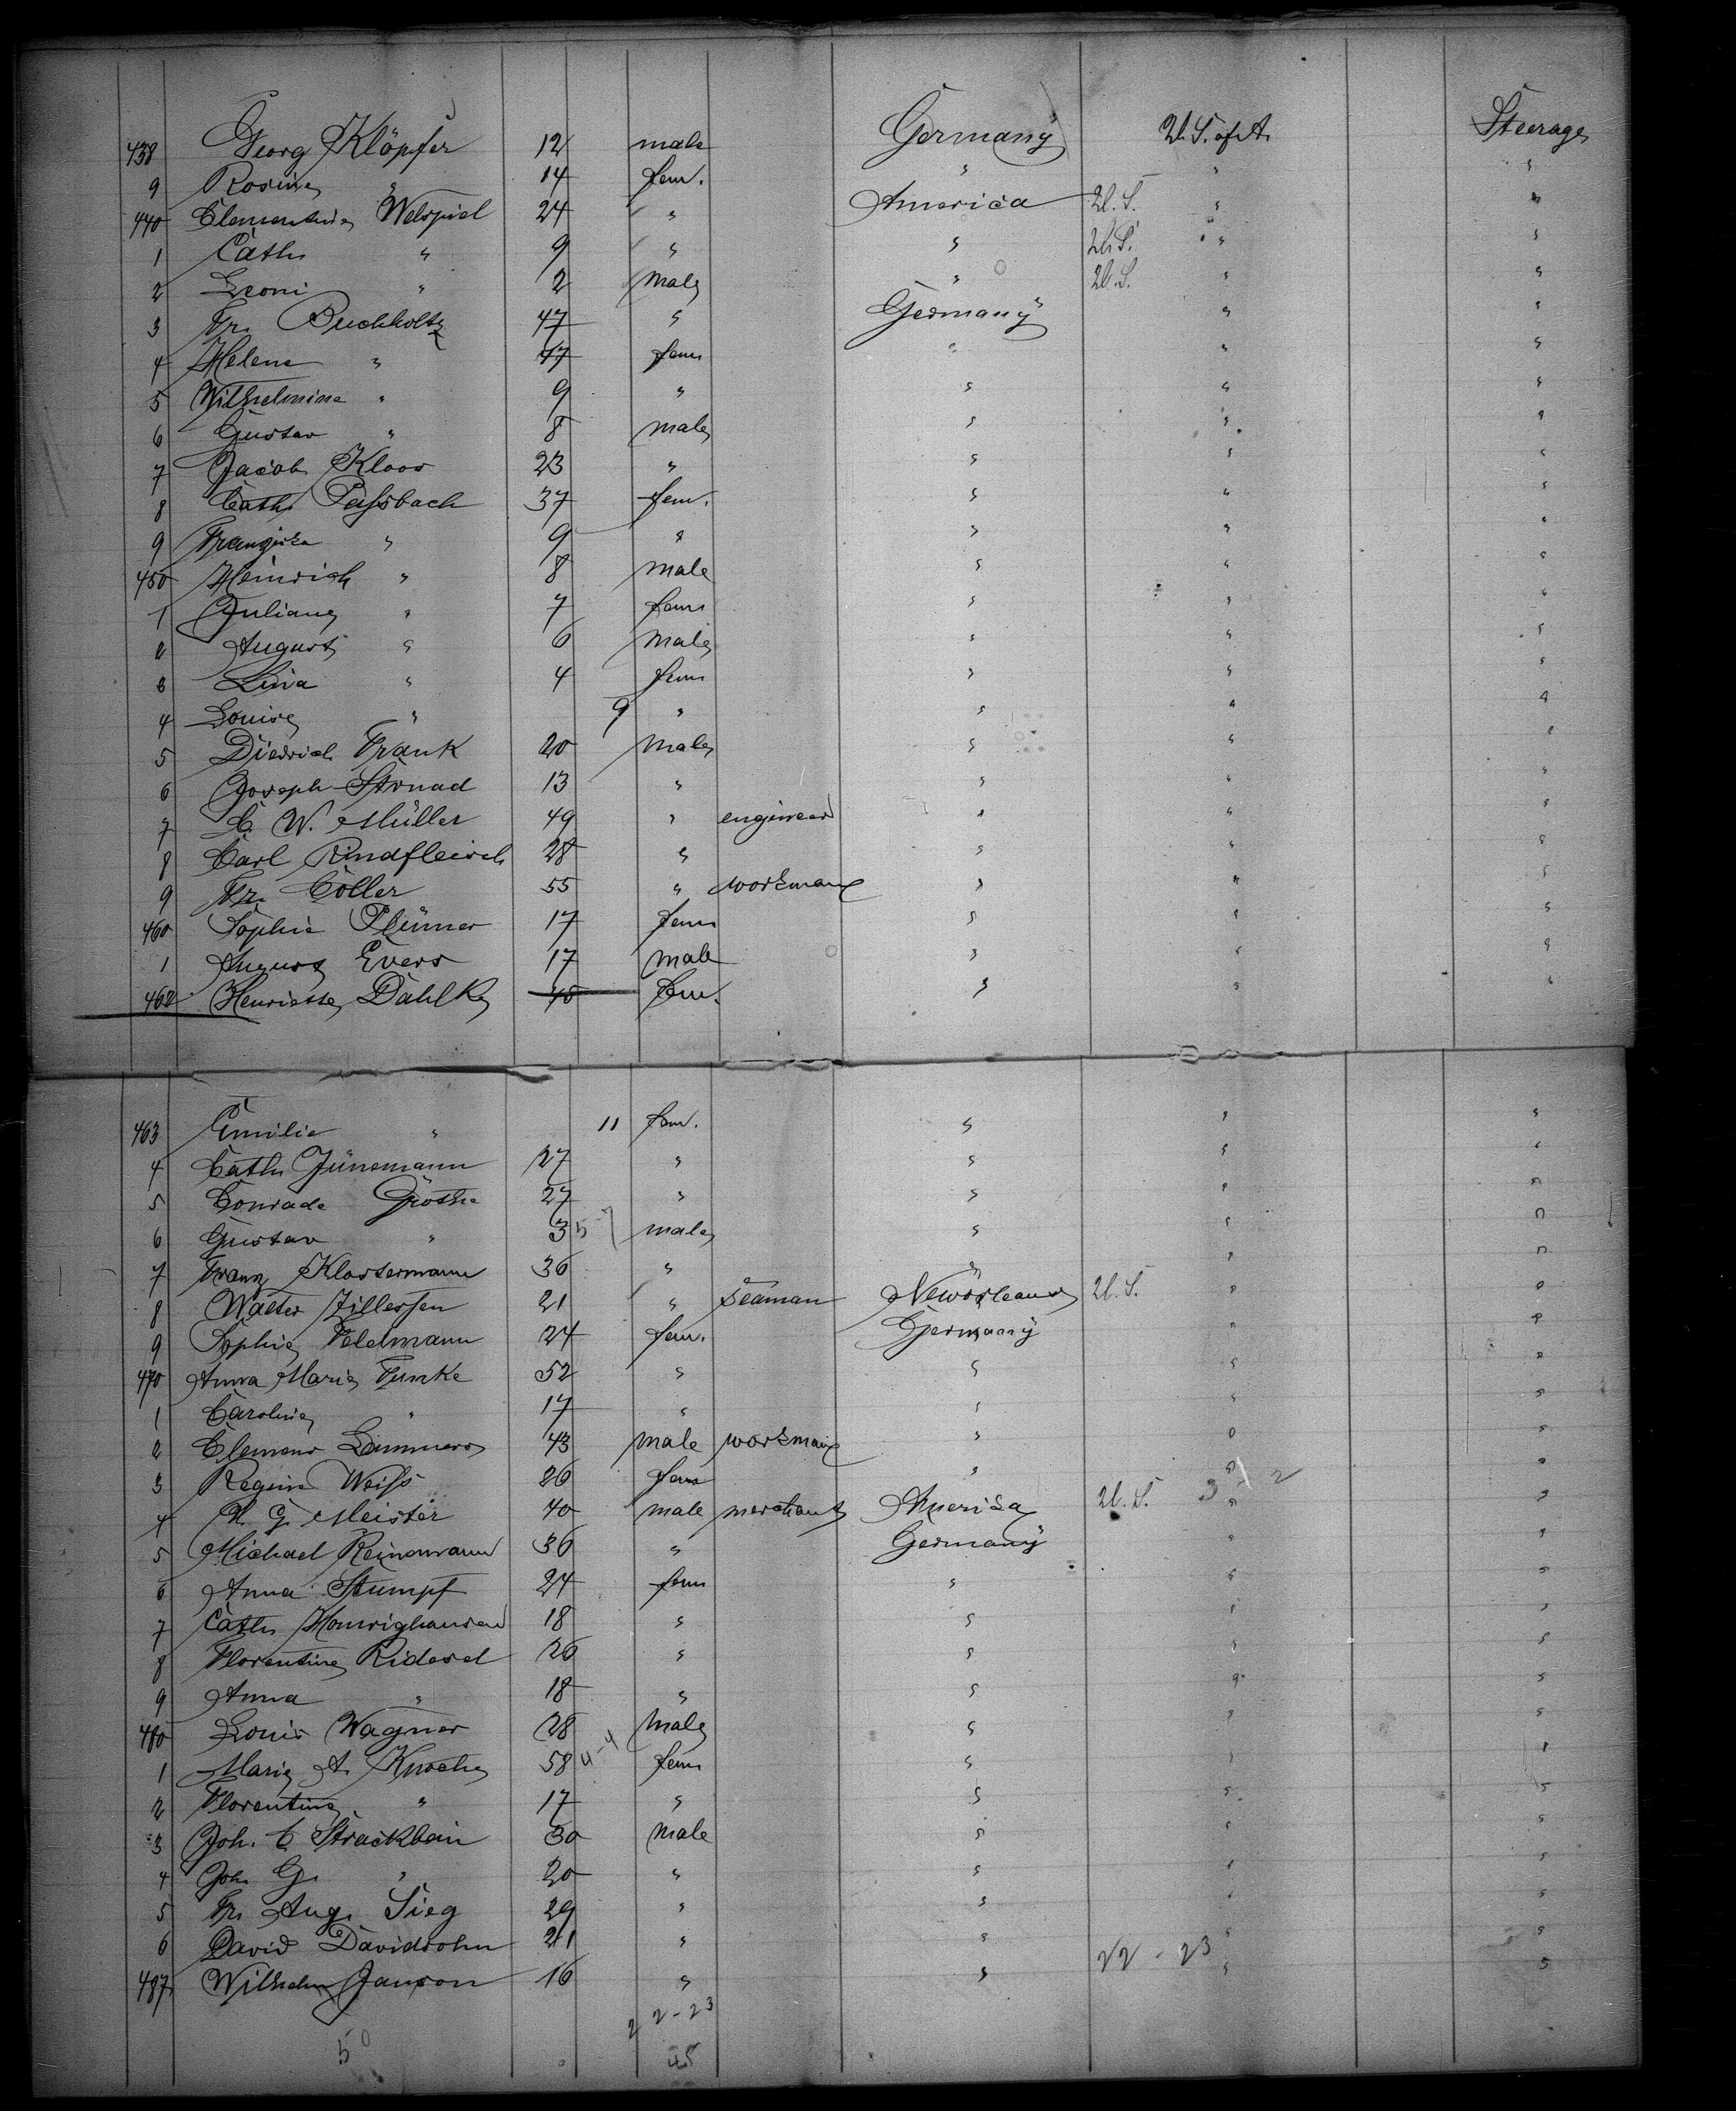 438 Georg Klöpfer 12 male Germany U.S. of A. Steerage
9 Rosine " 14 fem. " " "
440 Clementine Welspiel 24 " America U.S. " "
1 Cath. " 9 " " U.S. " "
2 Leoni " 2 male " U.S. " "
3 Fr. Buchholtz 47 " Germany " "
4 Helene " 47 fem " " "
5 Wilhelmine " 9 " " " "
6 Gustav " 8 male " " "
7 Jacob Kloos 23 " " " "
8 Cath. Passbach 37 fem. " " "
9 Franziska " 9 " " " "
450 Heinrich " 8 male " " "
1 Juliane " 7 fem " " "
2 August " 6 male " " "
3 Lina " 4 fem " " "
4 Louise " 9 " " " "
5 Diedrich Frank 20 male " " "
6 Joseph Strnad 13 " " " "
7 C. W. Müller 49 " engineer " " "
8 Carl Rindfleisch 28 " " " "
9 Fr. Cöller 55 " workman " " "
460 Sophie Plümer 17 fem " " "
1 August Evers 17 male " " "
462 Henriette Dahlke 45 fem. " " "
463 Emilie " 11 fem. " " "
4 Cath. Jünemann 27 " " " "
5 Conrade Grothe 27 " " " "
6 Gustav " 3 male " " "
7 Franz Klostermann 36 " " " "
8 Walter Zillessen 21 " seaman New Orleans U.S. " "
9 Sophie Feldmann 24 fem. Germany " "
470 Anna Marie Funke 52 " " " "
1 Caroline " 17 " " " "
2 Clemens Lammers 43 male workman " " "
3 Regine Weiss 26 fem " " "
4 G. Meister 40 male merchant America U.S. " "
5 Michael Reinemann 36 " Germany " "
6 Anna Stumpf 24 fem " " "
7 Cath. 18 " " " "
8 Florentine Ridesel 26 " " " "
9 Anna " 18 " " " "
480 Louis Wagner 28 male " " "
1 Marie A. Knoche 58 4-4 fem " " "
2 Florentine " 17 " " " "
3 Joh. C. Strackbein 30 male " " "
4 Joh. G. " 20 " " " "
5 Fr. Aug. Sieg 29 " " " "
6 David Davidsohn 21 " " " "
487 Wilhelm Janson 16 " " 22-23 " "
22-23
50 45